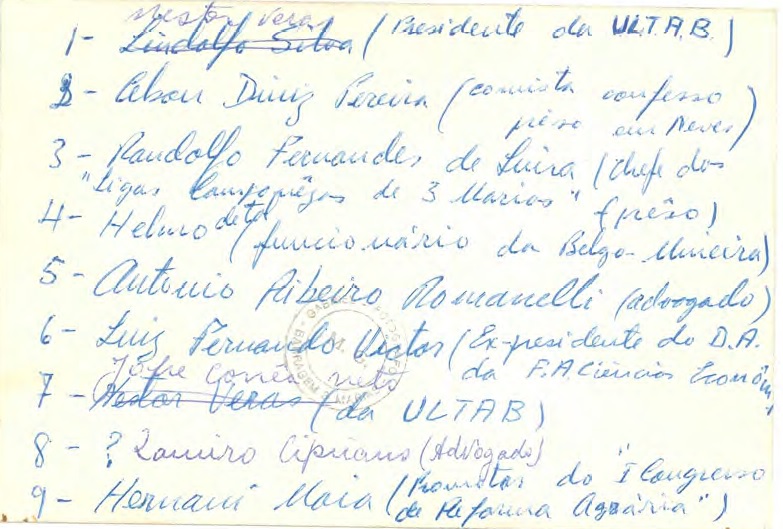 Nestor Veras
1- Lindolfo Silva (Presidente da ULT.A.B.)
2- Cleson Diniz Pereira (comista confesso
prêso em Neves)
3- Randolfo Fernandes de Lima (chefe dos
"Ligas Camponêsas de 3 Marias" (prêso)
4- Helmo de tal (funcionário da Belgo-Mineira)
5- Antonio Ribeiro Romanelli (advogado)
6- Luiz Fernando Victor (Ex-presidente do D.A.
da F.A. Ciências Econôm
Jofre Corrêa Neto
7- Nestor Veras (da ULTAB)
8- ? Ramiro Cipriano (Advogado)
9- Hernani Maia (Promotor do "I Congresso
de Reforma Agrária")